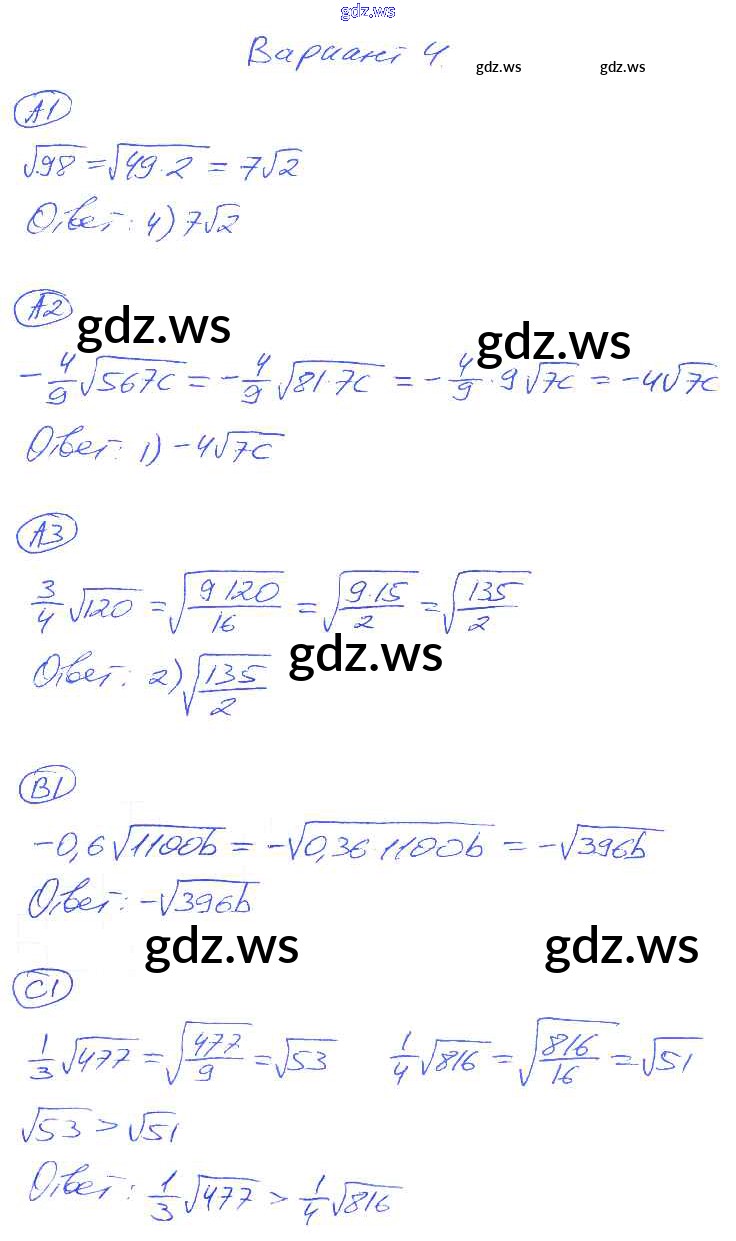 gdz.ws
Вариант 4.
gdz.ws gdz.ws
А1
√98 = √49·2 = 7√2
Ответ: 4) 7√2
А2
gdz.ws gdz.ws
-4/9 √567c = -4/9 √81·7c = -4/9 · 9√7c = -4√7c
Ответ: 1) -4√7c
А3
3/4 √120 = √(9 120/16) = √(9·15/2) = √(135/2)
gdz.ws
Ответ: 2) √(135/2)
В1
-0,6√1100b = -√0,36·1100b = -√396b
Ответ: -√396b
gdz.ws gdz.ws
С1
1/3 √477 = √(477/9) = √53 1/4 √816 = √(816/16) = √51
√53 > √51
Ответ: 1/3 √477 > 1/4 √816